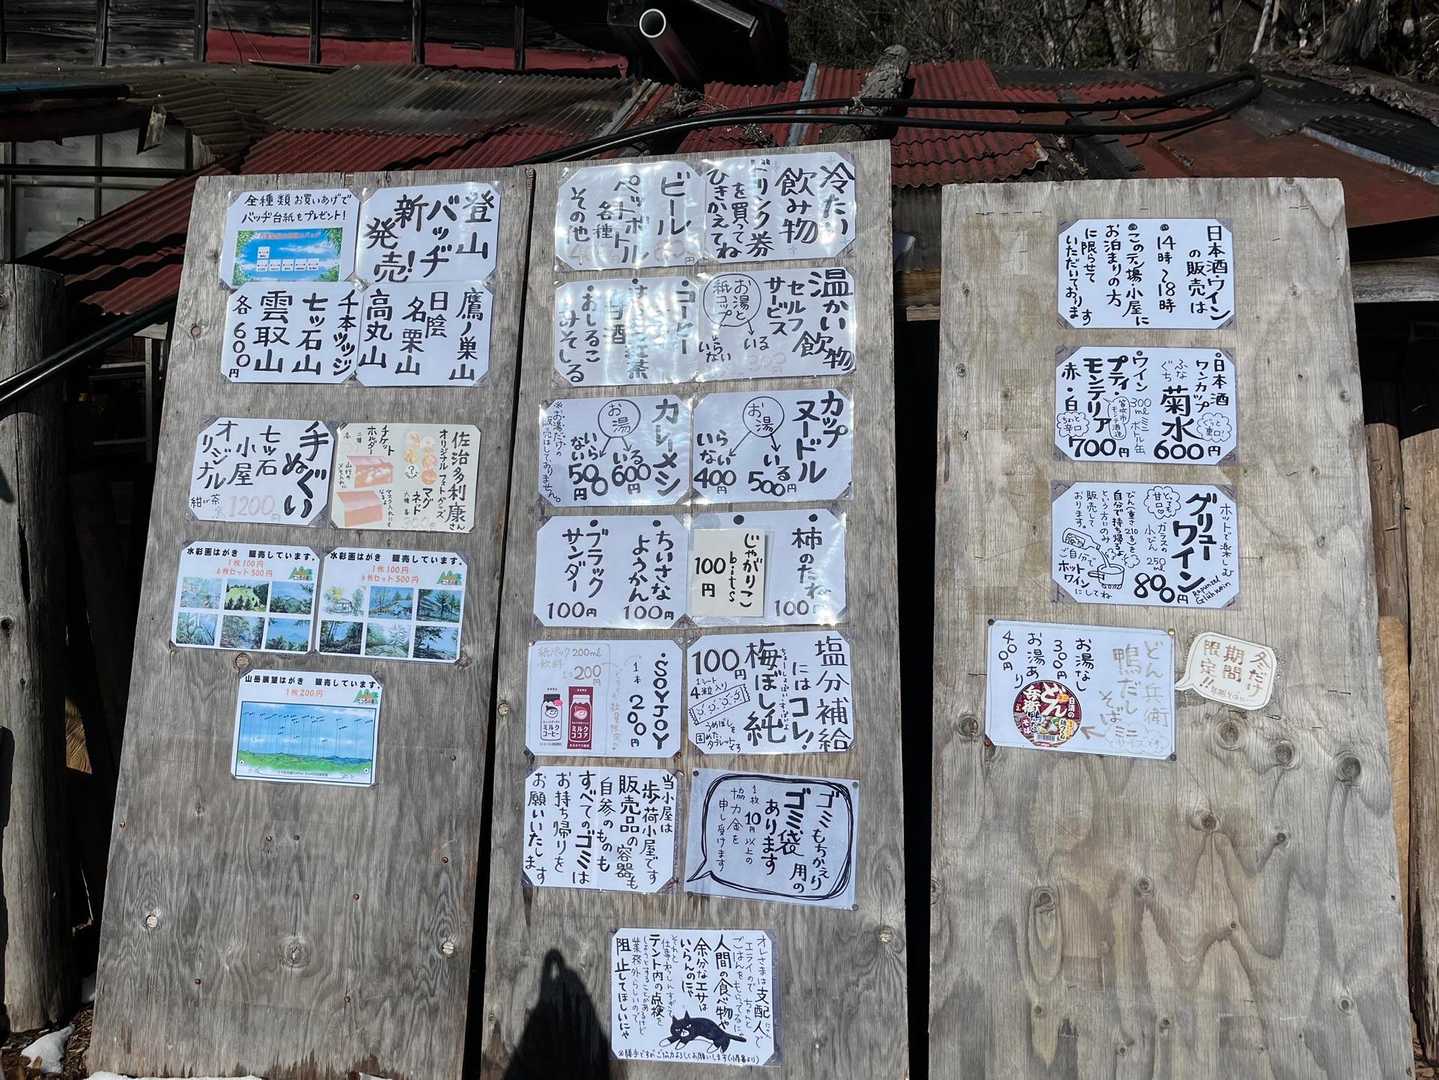 全種類お買いあげで
バッヂ台紙もプレゼント!
登山
バッヂ
新
発売!
千本ツツジ
七ッ石山
雲取山
各600円
鷹ノ巣山
日陰名栗山
高丸山
手ぬぐい
七ッ石
小屋
オリジナル
紺が茶
1200円
佐治多利康さん
オリジナルフォトグッズ
マグネット
チケットホルダー
水彩画はがき 販売しています。
1枚100円
6枚セット500円
水彩画はがき 販売しています。
1枚100円
6枚セット500円
山岳展望はがき 販売しています。
1枚200円
冷たい
飲み物
ドリンク券
を買って
ひきかえてね
ビール
ペットボトル
各種
その他
温かい飲物
セルフ
サービス
お湯と
紙コップ
いる
いらない
・コーヒー
・おしるこ
みそしる
カップ
ヌードル
お湯
いる
500円
いらない
400円
カレーメシ
お湯
いる
600円
いらない
500
※お湯だけの
販売はしておりません。
・柿のたね
100円
じゃがりこ
bits
100円
・ちいさな
ようかん
100円
・ブラック
サンダー
100円
塩分補給
にはコレ!
梅ぼし純
100円
1シート
4粒入り
うめぼしを
固めた
タブレットです
・SOYJOY
1本
200円
紙パック200ml
飲料
200円
ミルク
コーヒー
ミルク
ココア
ゴミもちかえり
用の
ゴミ袋
あります
1枚10円以上の
協力金を
申し受けます
当小屋は
歩荷小屋です
販売品の容器も
自参のものも
すべてのゴミは
お持ち帰りを
お願いいたします
オレさまは支配人で
エライので ちゃんと
ごはんをもらってるにゃ
人間の食べ物や
余分なエサは
いらんのにゃ
それと
仕事ねっしんすぎて
テント内の点検を
しようとすることがあるけど
業務外らしいので、
阻止してほしいにゃ
※勝手ですがご協力よろしくお願いします(小屋番より)
日本酒・ワイン
の販売は
●14時〜18時
●このテン場・小屋に
お泊まりの方
に限らせて
いただいております
・日本酒
ワンカップ
ふなぐち
菊水
ぐっと辛口
600円
・ワイン
300mlミニボトル缶
プティ・
モンテリア
赤・白
ちょい辛口
700円
ホットで楽しむ
グリューワイン
Rapunzel
Glühwein
とっても
甘口♡
ガラスの
小びん
250ml
800円
びん(重さ210g)を
自分で持ち帰るよ
という方にのみ
販売して
おります。
ご自分で
ホット
ワインにしてね
どん兵衛
鴨だし
そば
ミニ
お湯なし
300円
お湯あり
400円
日清の
どん兵衛
冬だけ
期間
限定!!